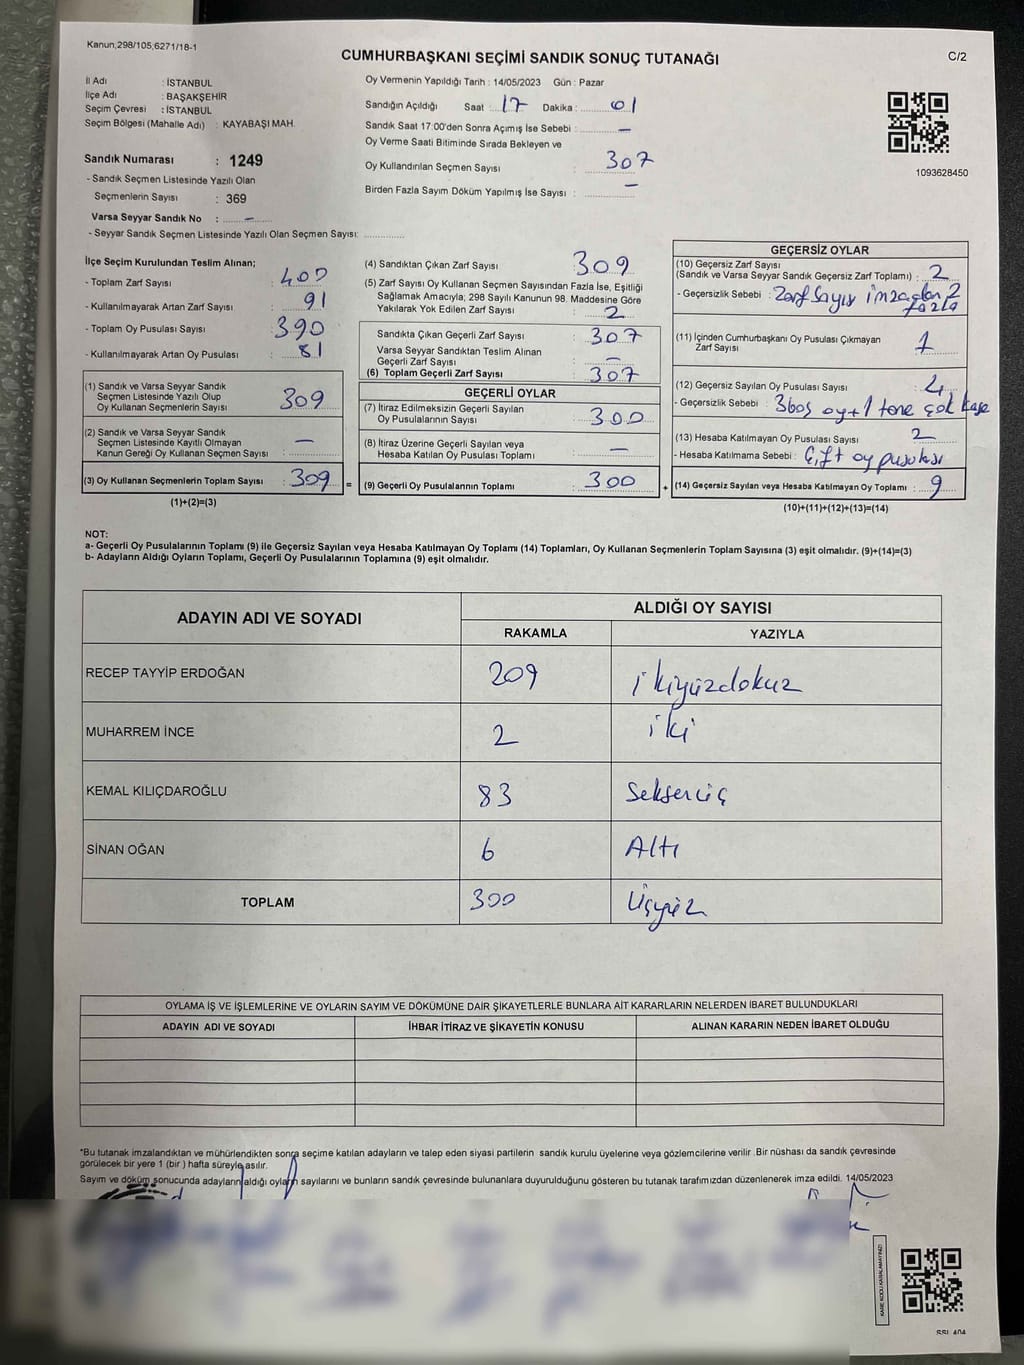 Kanun,298/105,6271/18-1
CUMHURBAŞKANI SEÇİMİ SANDIK SONUÇ TUTANAĞI
C/2
İl Adı : İSTANBUL
İlçe Adı : BAŞAKŞEHİR
Seçim Çevresi : İSTANBUL
Seçim Bölgesi (Mahalle Adı) : KAYABAŞI MAH.
Sandık Numarası : 1249
- Sandık Seçmen Listesinde Yazılı Olan
Seçmenlerin Sayısı : 369
Varsa Seyyar Sandık No : -
- Seyyar Sandık Seçmen Listesinde Yazılı Olan Seçmen Sayısı:
Oy Vermenin Yapıldığı Tarih : 14/05/2023 Gün : Pazar
Sandığın Açıldığı Saat : 17 Dakika : 01
Sandık Saat 17:00'den Sonra Açımış İse Sebebi : -
Oy Verme Saati Bitiminde Sırada Bekleyen ve
Oy Kullandırılan Seçmen Sayısı : 307
Birden Fazla Sayım Döküm Yapılmış İse Sayısı : -
1093628450
İlçe Seçim Kurulundan Teslim Alınan;
- Toplam Zarf Sayısı : 400
- Kullanılmayarak Artan Zarf Sayısı : 91
- Toplam Oy Pusulası Sayısı : 390
- Kullanılmayarak Artan Oy Pusulası : 81
(1) Sandık ve Varsa Seyyar Sandık
Seçmen Listesinde Yazılı Olup
Oy Kullanan Seçmenlerin Sayısı : 309
(2) Sandık ve Varsa Seyyar Sandık
Seçmen Listesinde Kayıtlı Olmayan
Kanun Gereği Oy Kullanan Seçmen Sayısı : -
(3) Oy Kullanan Seçmenlerin Toplam Sayısı : 309 =
(1)+(2)=(3)
(4) Sandıktan Çıkan Zarf Sayısı : 309
(5) Zarf Sayısı Oy Kullanan Seçmen Sayısından Fazla İse, Eşitliği
Sağlamak Amacıyla; 298 Sayılı Kanunun 98. Maddesine Göre
Yakılarak Yok Edilen Zarf Sayısı : 2
Sandıkta Çıkan Geçerli Zarf Sayısı : 307
Varsa Seyyar Sandıktan Teslim Alınan
Geçerli Zarf Sayısı : -
(6) Toplam Geçerli Zarf Sayısı : 307
GEÇERLİ OYLAR
(7) İtiraz Edilmeksizin Geçerli Sayılan
Oy Pusulalarının Sayısı : 300
(8) İtiraz Üzerine Geçerli Sayılan veya
Hesaba Katılan Oy Pusulası Toplamı : -
(9) Geçerli Oy Pusulalarının Toplamı : 300 +
GEÇERSİZ OYLAR
(10) Geçersiz Zarf Sayısı
(Sandık ve Varsa Seyyar Sandık Geçersiz Zarf Toplamı) : 2
- Geçersizlik Sebebi : Zarf sayısı imzadan 2
fazla
(11) İçinden Cumhurbaşkanı Oy Pusulası Çıkmayan
Zarf Sayısı : 1
(12) Geçersiz Sayılan Oy Pusulası Sayısı : 4
- Geçersizlik Sebebi : 3 boş oy + 1 tane çok kaşe
(13) Hesaba Katılmayan Oy Pusulası Sayısı : 2
- Hesaba Katılmama Sebebi : Çift oy pusulası
(14) Geçersiz Sayılan veya Hesaba Katılmayan Oy Toplamı : 9
(10)+(11)+(12)+(13)=(14)
NOT:
a- Geçerli Oy Pusulalarının Toplamı (9) ile Geçersiz Sayılan veya Hesaba Katılmayan Oy Toplamı (14) Toplamları, Oy Kullanan Seçmenlerin Toplam Sayısına (3) eşit olmalıdır. (9)+(14)=(3)
b- Adayların Aldığı Oyların Toplamı, Geçerli Oy Pusulalarının Toplamına (9) eşit olmalıdır.
ADAYIN ADI VE SOYADI
ALDIĞI OY SAYISI
RAKAMLA YAZIYLA
RECEP TAYYİP ERDOĞAN 209 ikiyüzdokuz
MUHARREM İNCE 2 iki
KEMAL KILIÇDAROĞLU 83 Seksenüç
SİNAN OĞAN 6 Altı
TOPLAM 300 Üçyüz
OYLAMA İŞ VE İŞLEMLERİNE VE OYLARIN SAYIM VE DÖKÜMÜNE DAİR ŞİKAYETLERLE BUNLARA AİT KARARLARIN NELERDEN İBARET BULUNDUKLARI
ADAYIN ADI VE SOYADI İHBAR İTİRAZ VE ŞİKAYETİN KONUSU ALINAN KARARIN NEDEN İBARET OLDUĞU
*Bu tutanak imzalandıktan ve mühürlendikten sonra seçime katılan adayların ve talep eden siyasi partilerin sandık kurulu üyelerine veya gözlemcilerine verilir .Bir nüshası da sandık çevresinde
görülecek bir yere 1 (bir ) hafta süreyle asılır.
Sayım ve döküm sonucunda adayların aldığı oyların sayılarını ve bunların sandık çevresinde bulunanlara duyurulduğunu gösteren bu tutanak tarafımızdan düzenlenerek imza edildi. 14/05/2023
KARE KODU KARALAMAYINIZ!